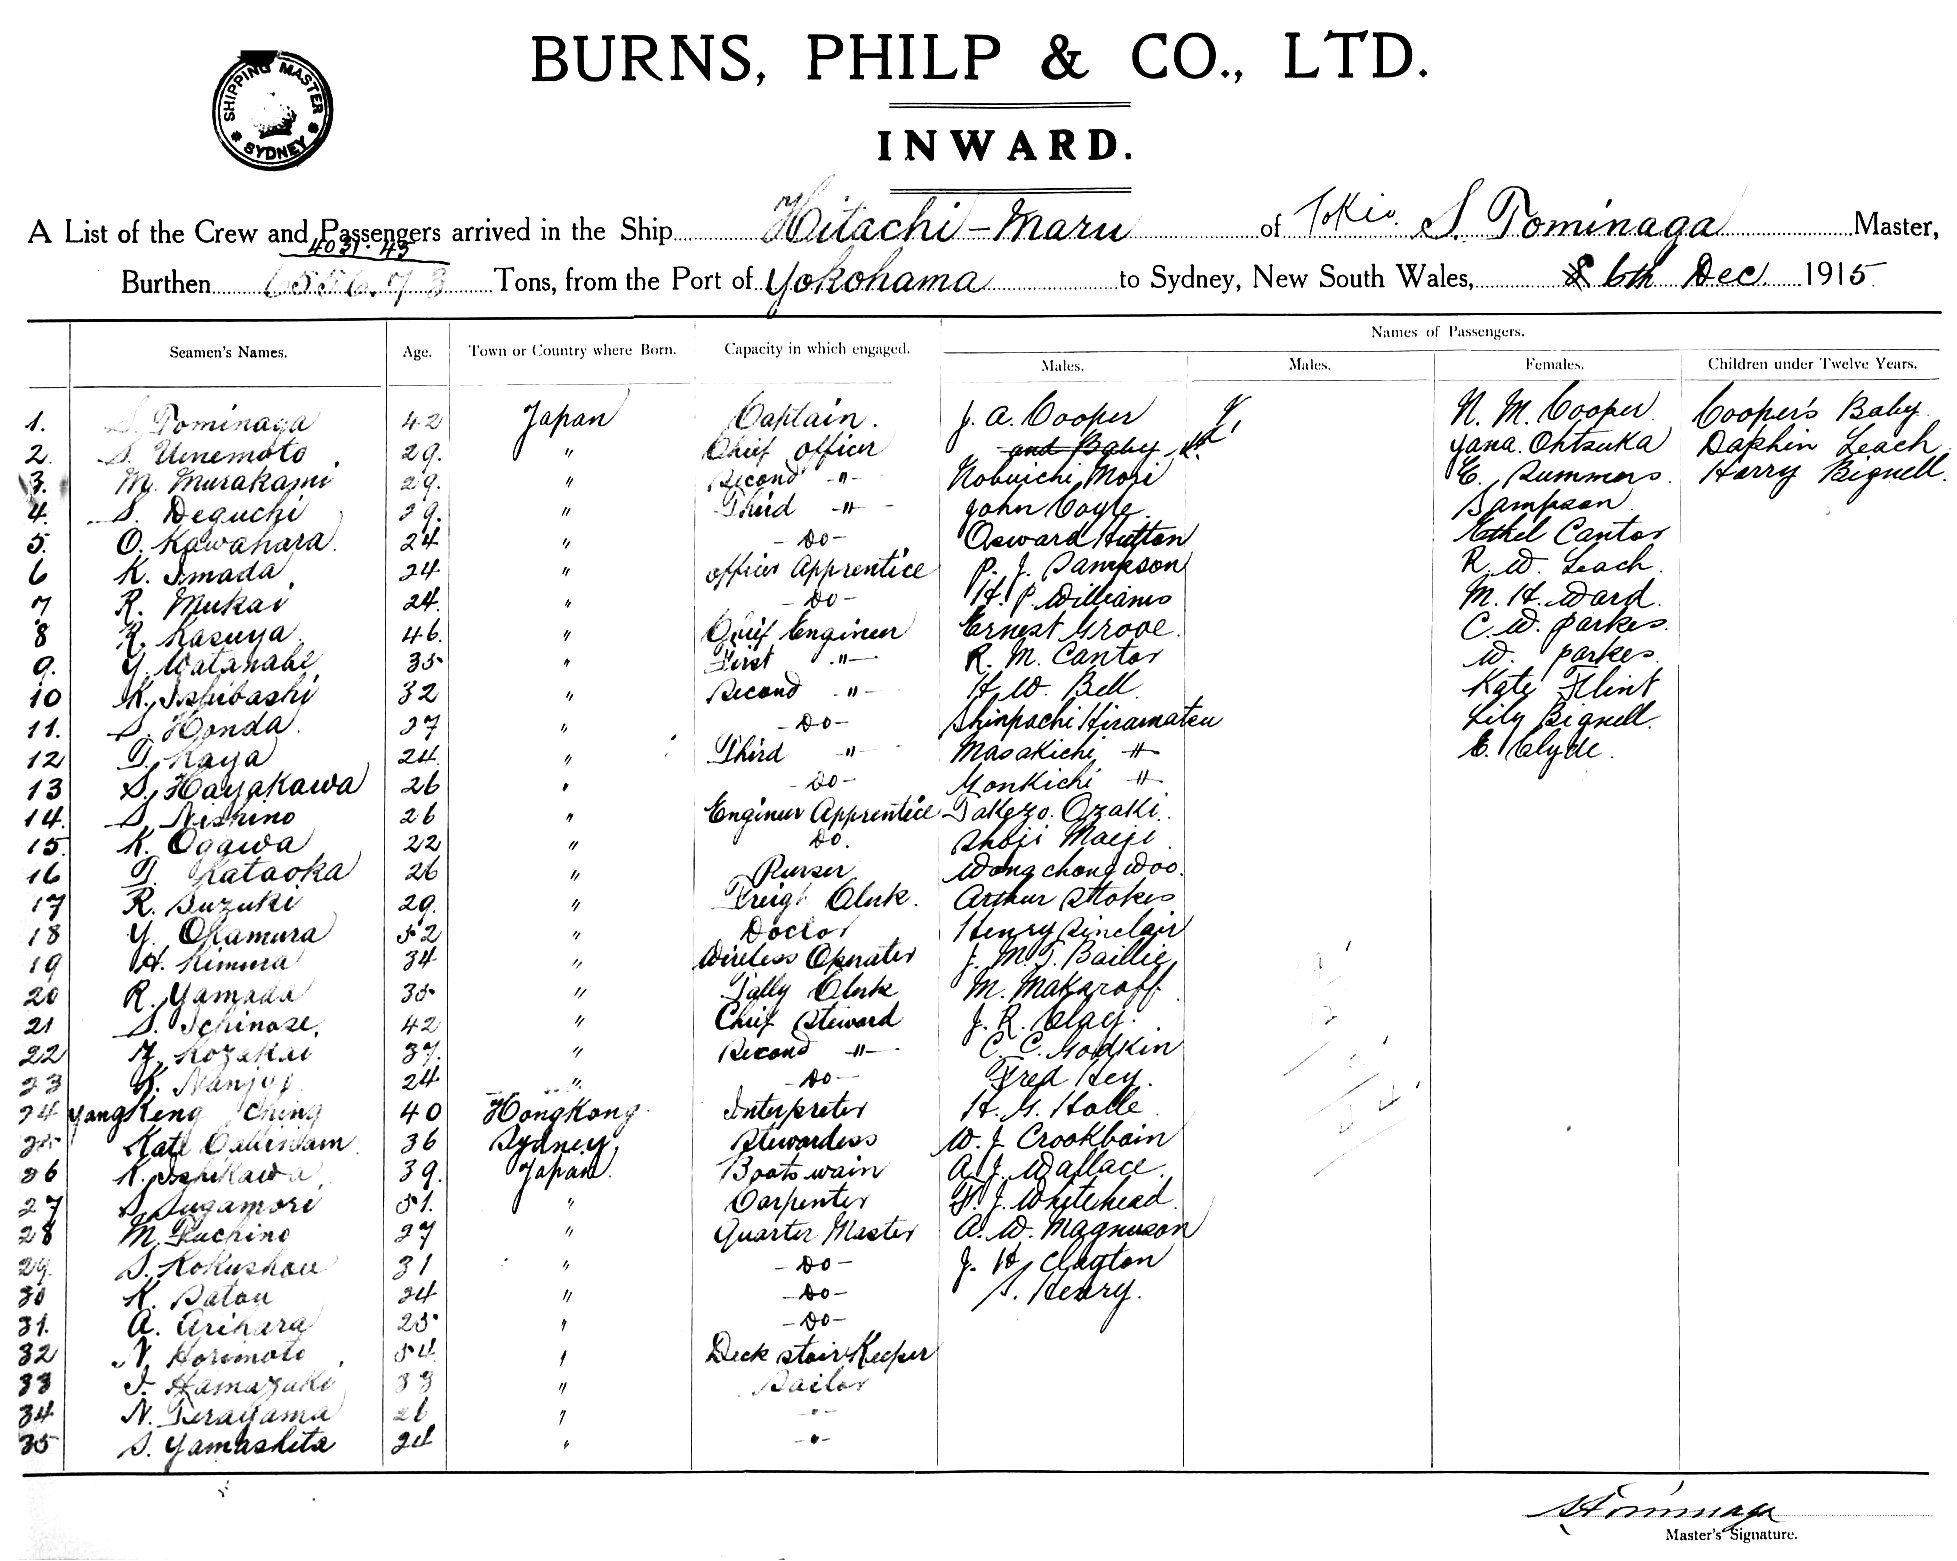 BURNS, PHILP & CO., LTD.
SHIPPING MASTER
SYDNEY
INWARD.
A List of the Crew and Passengers arrived in the Ship Hitachi-Maru of Tokio. S. Tominaga Master,
4031.43
Burthen 6556.73 Tons, from the Port of Yokohama to Sydney, New South Wales, 6th Dec 1915
Names of Passengers.
Seamen's Names. Age. Town or Country where Born. Capacity in which engaged. Males. Males. Females. Children under Twelve Years.
1. S. Tominaga 42 Japan Captain. J. A. Cooper N. M. Cooper Cooper's Baby
2. S. Uinemoto 29. " Chief officer and Baby Yana. Ohtsuka Daphin Leach
3. M. Murakami 29. " Second -"- Nobuichi Mori E. Summers. Harry Bignell.
4. S. Deguchi 29. " Third -"- John Coyle. Sampson
5. O. Kawahara. 24 " -Do- Osward Hutton Ethel Cantor
6 K. Imada 24 " officer Apprentice P. J. Sampson R. W. Leach.
7. R. Mukai 24. " -Do- H. P. Williams M. H. Ward.
8 R. Kasuya. 46. " Chief Engineer Ernest Grove. C. W. Parkes.
9. Y. Watanabe 35 " First "- R. M. Cantor W. Parkes.
10 K. Ishibashi 32 " Second "- H. W. Bell Kate Flint
11. S. Honda. 27 " -Do- Shinpachi Hiramatsu Lily Bignell.
12 T. Kaya 24. " Third "- Masakichi -"- E. Clyde.
13 S. Hayakawa 26 " -Do- Monkichi -"-
14. S. Nishino 26 " Engineer Apprentice Takezo. Ozaki.
15. K. Ogawa 22 " Do. Shoji Maeji
16 T. Kataoka 26 " Purser Wong chong Woo.
17 R. Suzuki 29. " Freigt Clerk. Arthur Stokes
18 Y. Okamura 52 " Doctor Henry Sinclair
19 H. Kimura 34 " Wireless Operator J. M. T. Baillie
20 R. Yamada 35 " Tally Clerk M. Makaroff
21 S. Ichinose. 42 " Chief Steward J. R. Clay.
22 Z. Kozakai 37. " Second -"- C. C. Godkin
23 K. Nanjyo 24 " -Do- Fred Hey.
24 Yang Keng Ching 40 HongKong Interpreter H. G. Holle
25 Kate 36 Sydney. Stewardess W. J. Crookbain
26 K. Ishikawa 39. Japan. Boatswain A. J. Wallace.
27 S. Sugamori 51. " Carpenter F. J. Whitehead.
28 M. Fuchino 27 " Quarter Master A. W. Magnuson
29. S. Kokushou 31 " -Do- J. H. Clayton
30 K. Satou 24 " -Do- S. Henry.
31. A. Arihara 25 " -Do-
32 N. Horimoto 54 " Deck stair Keeper
33 I. Hamazuki 33 " Sailor
34 N. Terayama 26 " -"-
35 S. Yamashita 24 " -"-
S Tominaga
Master's Signature.